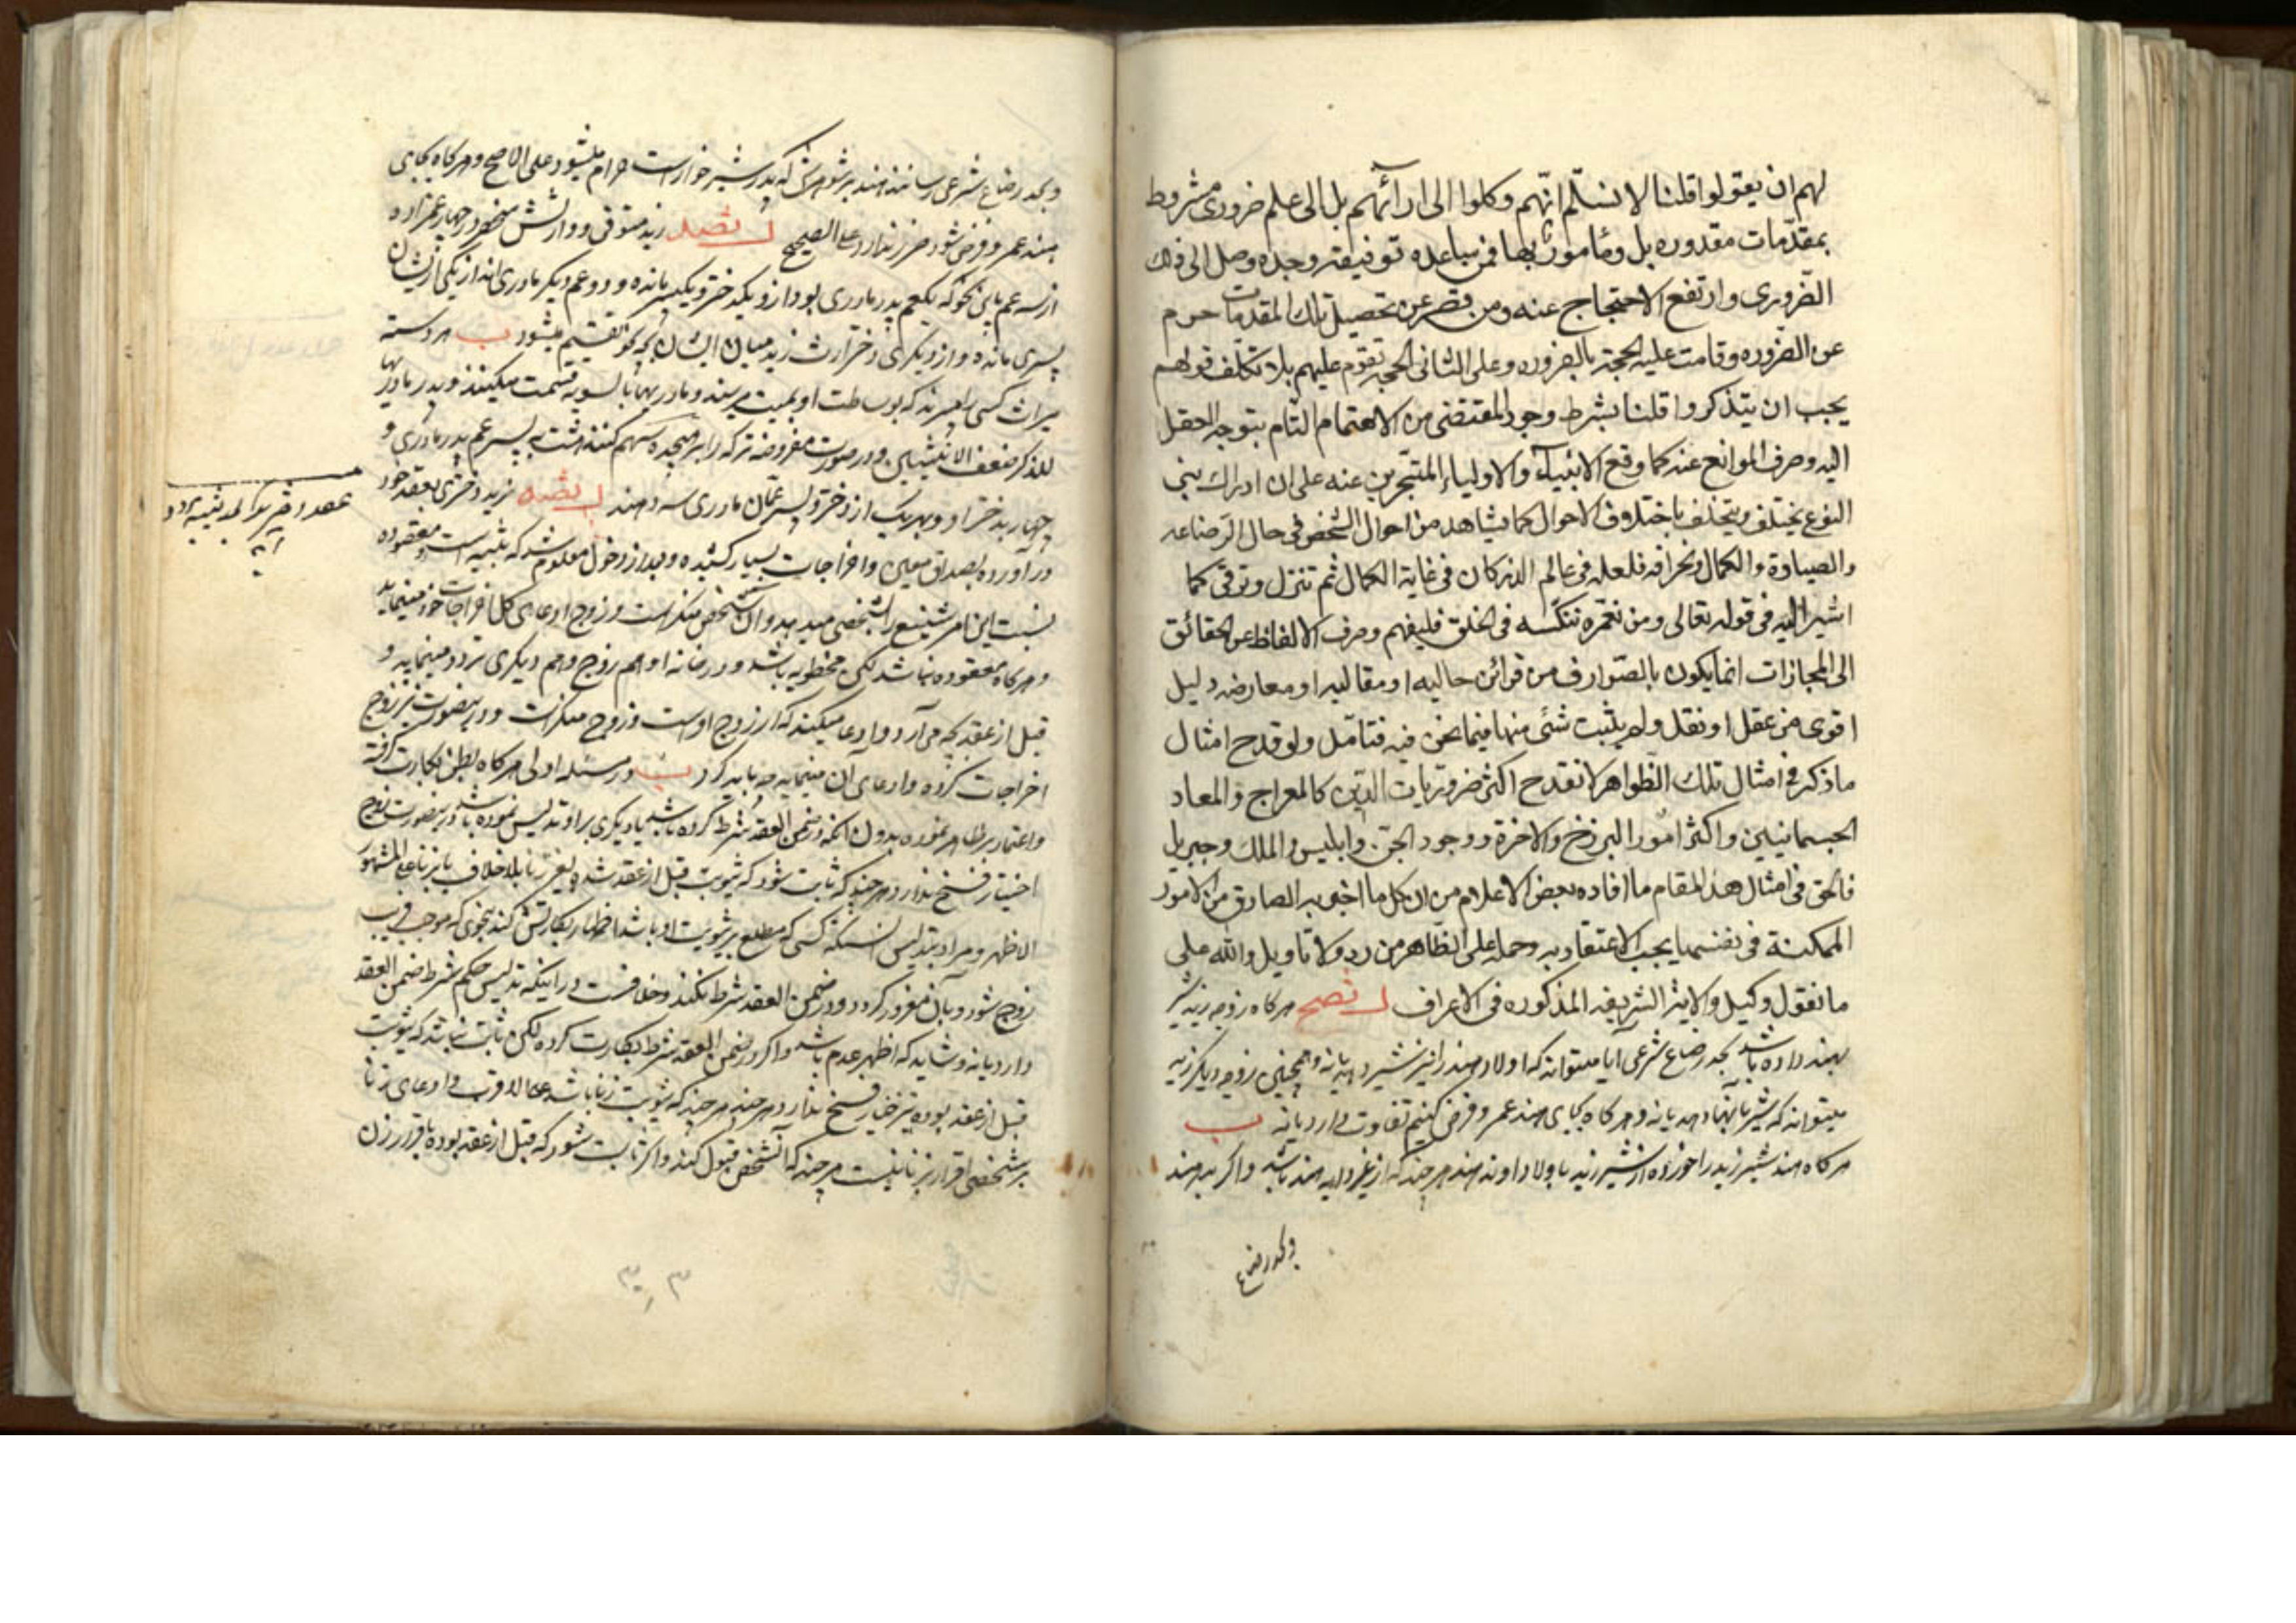 لهم ان يعقولوا قلنا لا نسلّم انّهم وكلوا الى ارائهم بل الى علم ضرورى مشروط
بمقدّمات مقدوره بل ومأمور بها فمن ساعده توفيقه وجده وصل الى ذلك
الضّرورى وارتفع الاحتجاج عنه ومن قصر عن تحصيل تلك المقدمات حرم
عن الضروره وقامت عليه الحجة بالضروره وعلى الثانى الحجة تقوم عليهم بلا تكلّف قولهم
يجب ان يتذكروا قلنا بشرط وجود المقتضى من الاهتمام التام بتوجه العقل
اليه وصرف الموانع عنه كما وقع الانبياء والاولياء المتبحّرين عنه على ان ادراك بنى
النوع يختلف ويتخلف باختلاف الاحوال كما يشاهد من احوال الشخص فى حال الرضاعه
والصباوة والكمال وانحرافه فلعله فى عالم الذر كان فى غاية الكمال ثم تنزل وترقى كما
اشير اليه فى قوله تعالى ومن نعمّره ننكّسه فى الخلق فليفهم وصرف الالفاظ عن الحقائق
الى المجازات انما يكون بالصوارف من قرائن حاليه او مقاليه او معارضه دليل
اقوى من عقل او نقل ولم يثبت شئ منها فيما نحن فيه فتامّل ولو قدح امثال
ما ذكر فى امثال تلك الظواهر لانقدح اكثر ضروريات الدّين كالمعراج والمعاد
الجسمانيين واكثر امور البرزخ والاخرة ووجود الجن وابليس والملك وجبريل
فالحق فى امثال هذا المقام ما افاده بعض الاعلام من ان كل ما اخبر به الصادق من الامور
الممكنة فى نفسها يجب الاعتقاد به وحمله على الظاهر من دون لا تاويل والله على
ما نقول وكيل والايه الشريفه المذكوره فى الاعراف هركاه زوجه زيد شير
بهند داده باشد بحد رضاع شرعى آيا ميتواند كه اولاد هند را نيز شير دهد يا نه وهمچنين زوجه ديكر زيد
ميتواند كه شير بآنها دهد يا نه وهركاه بجاى هند عمرو فرض كنيم تفاوت دارد يا نه ب
هركاه هند شير زيد را خورده از شير زيد باولاد او نه هند هر چند كه از غير دايه هند باشد واكر بد هند
وبحد رضاع
وبحد رضاع شرعى رسانند هند بر شوهرش كه پدر شير خوار است حرام ميشود على الاصح وهركاه بجاى
هند عمرو فرض شود ضرر ندارد على الصحيح زيد متوفى ووارثش منحصر در چهار عمزاده
از سه عم باين نحو كه يكعم پدر مادرى بود از و يكدختر و يكپسر مانده و دو عم ديكر مادرى اند از يكى ازيشان
پسرى مانده و از ديكرى دختر ارث زيد ميان ايشان بچه نحو تقسيم ميشود ب هر دسته
ميراث كسى را ميبرند كه بوساطت او بميت ميرسند و مادريها بالسويه قسمت ميكنند و پدر مادريها
للذكر ضعف الانثيين و در صورت مفروضه تركه را بر هيجده سهم كنند هشت به پسر عم پدر مادرى و
چهار بدختر او و بهر يك از دختر و پسر عمان مادرى سه دهند زيد دخترى بعقد خود
در آورده بصداق معين و اخراجات بسيار كشيده و بعد از دخول معلوم شد كه ثيبه است و معقوده
نسبت اين امر شنيع را بشخصى ميدهد و آن شخص منكر است و زوج ادعاى كل اخراجات خود مينمايد
و هركاه معقوده نباشد لكن مخطوبه باشد و در خانه او هم زوج و هم ديكرى تردد مينمايد و
قبل از عقد بچه مى آرد و ادعا ميكند كه از زوج اوست و زوج منكر است و درينصورت نيز زوج
اخراجات كرده و ادعاى آن مينمايد چه بايد كرد در مسئله اولى هركاه بظن بكارت كرفته
و اعتماد بر ظاهر نموده بدون آنكه در ضمن العقد شرط كرده باشد يا ديكرى بر او تدليس نموده باشد درينصورت زوج
اختيار فسخ ندارد هر چند كه ثابت شود كه ثيوبت قبل از عقد شده بغير زنا بلا خلاف يا بزنا على المشهور
الاظهر و مراد بتدليس آنستكه كسى كه مطلع بر ثيوبت او باشد اظهار بكارتش كند بنحوى كه موجب فريب
زوج شود و بآن مغرور كردد و در ضمن العقد شرط نكند و خلافست در اينكه تدليس حكم شرط ضمن العقد
دارد يا نه و شايد كه اظهر عدم باشد و اكر در ضمن العقد شرط بكارت كرده لكن ثابت نباشد كه ثيوبت
قبل از عقد بوده نيز خيار فسخ ندارد هر چند كه ثيوبت بزنا باشد على الاقرب و ادعاى زنا
بر شخصى اقرار بزنا نيست هر چند كه آنشخص قبول كند و اكر ثابت شود كه قبل از عقد بوده باقرار زن